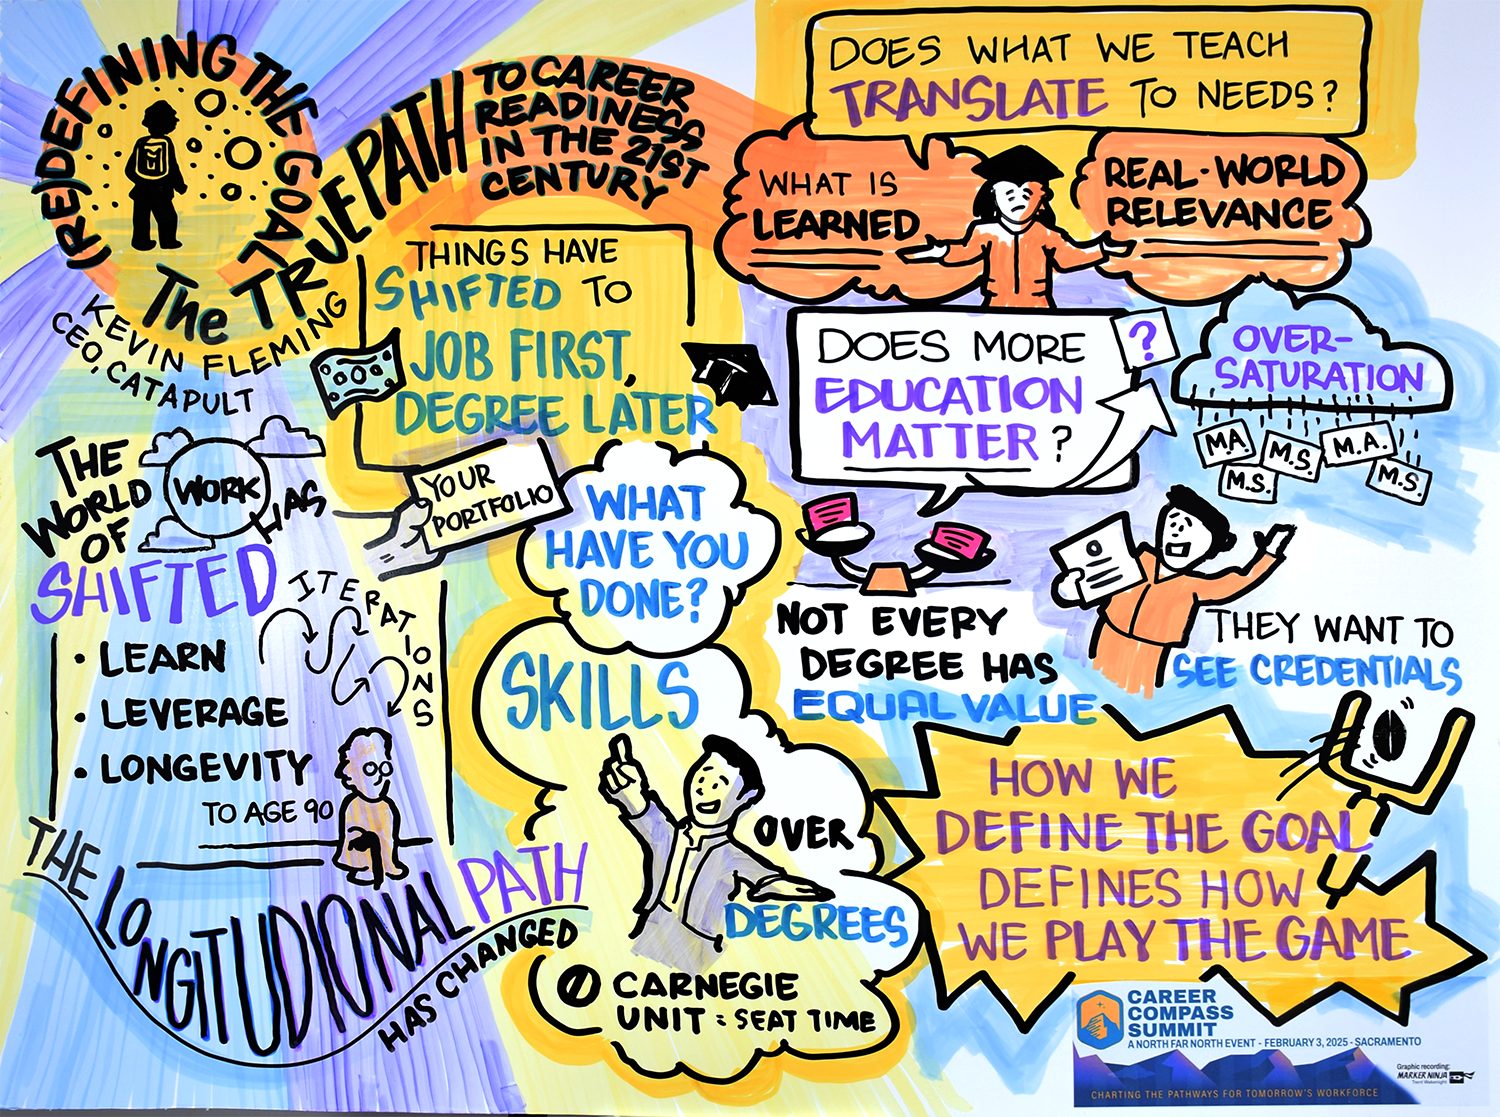 (RE)DEFINING THE GOAL
The TRUE PATH
TO CAREER
READINESS
IN THE 21ST
CENTURY
KEVIN FLEMING
CEO, CATAPULT
THINGS HAVE
SHIFTED TO
JOB FIRST,
DEGREE LATER
YOUR
PORTFOLIO
WHAT
HAVE YOU
DONE?
SKILLS
OVER
DEGREES
CARNEGIE
UNIT = SEAT TIME
THE
WORLD
OF
WORK
HAS
SHIFTED
ITERATIONS
• LEARN
• LEVERAGE
• LONGEVITY
TO AGE 90
THE LONGITUDIONAL PATH
HAS CHANGED
DOES WHAT WE TEACH
TRANSLATE TO NEEDS?
WHAT IS
LEARNED
REAL-WORLD
RELEVANCE
DOES MORE
EDUCATION
MATTER?
?
OVER-
SATURATION
M.A.
M.S.
M.A.
M.S.
M.S.
NOT EVERY
DEGREE HAS
EQUAL VALUE
THEY WANT TO
SEE CREDENTIALS
HOW WE
DEFINE THE GOAL
DEFINES HOW
WE PLAY THE GAME
CAREER
COMPASS
SUMMIT
A NORTH FAR NORTH EVENT - FEBRUARY 3, 2025 - SACRAMENTO
CHARTING THE PATHWAYS FOR TOMORROW'S WORKFORCE
Graphic recording:
MARKER NINJA
Trent Wakenight